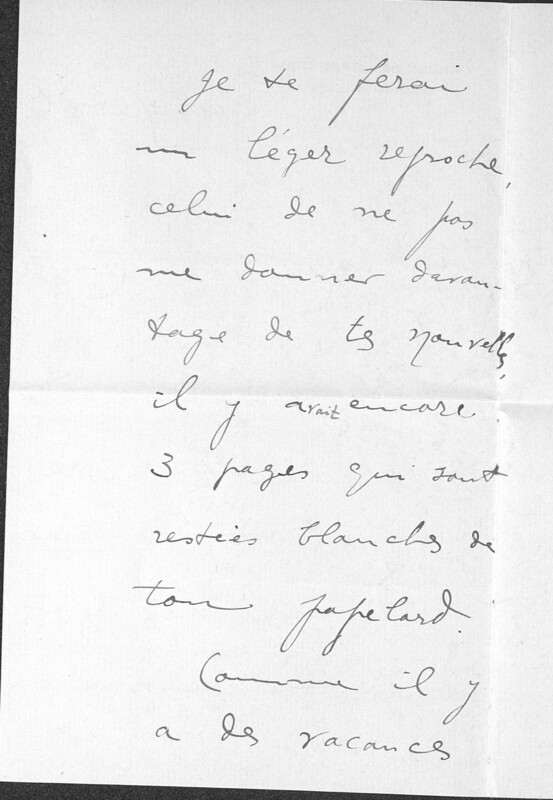 Je te ferai
un léger reproche,
celui de ne pas
me donner davan-
tage de tes nouvelles,
il y avait encore
3 pages qui sont
restées blanches de
ton papelard.
Comme il y
a des vacances